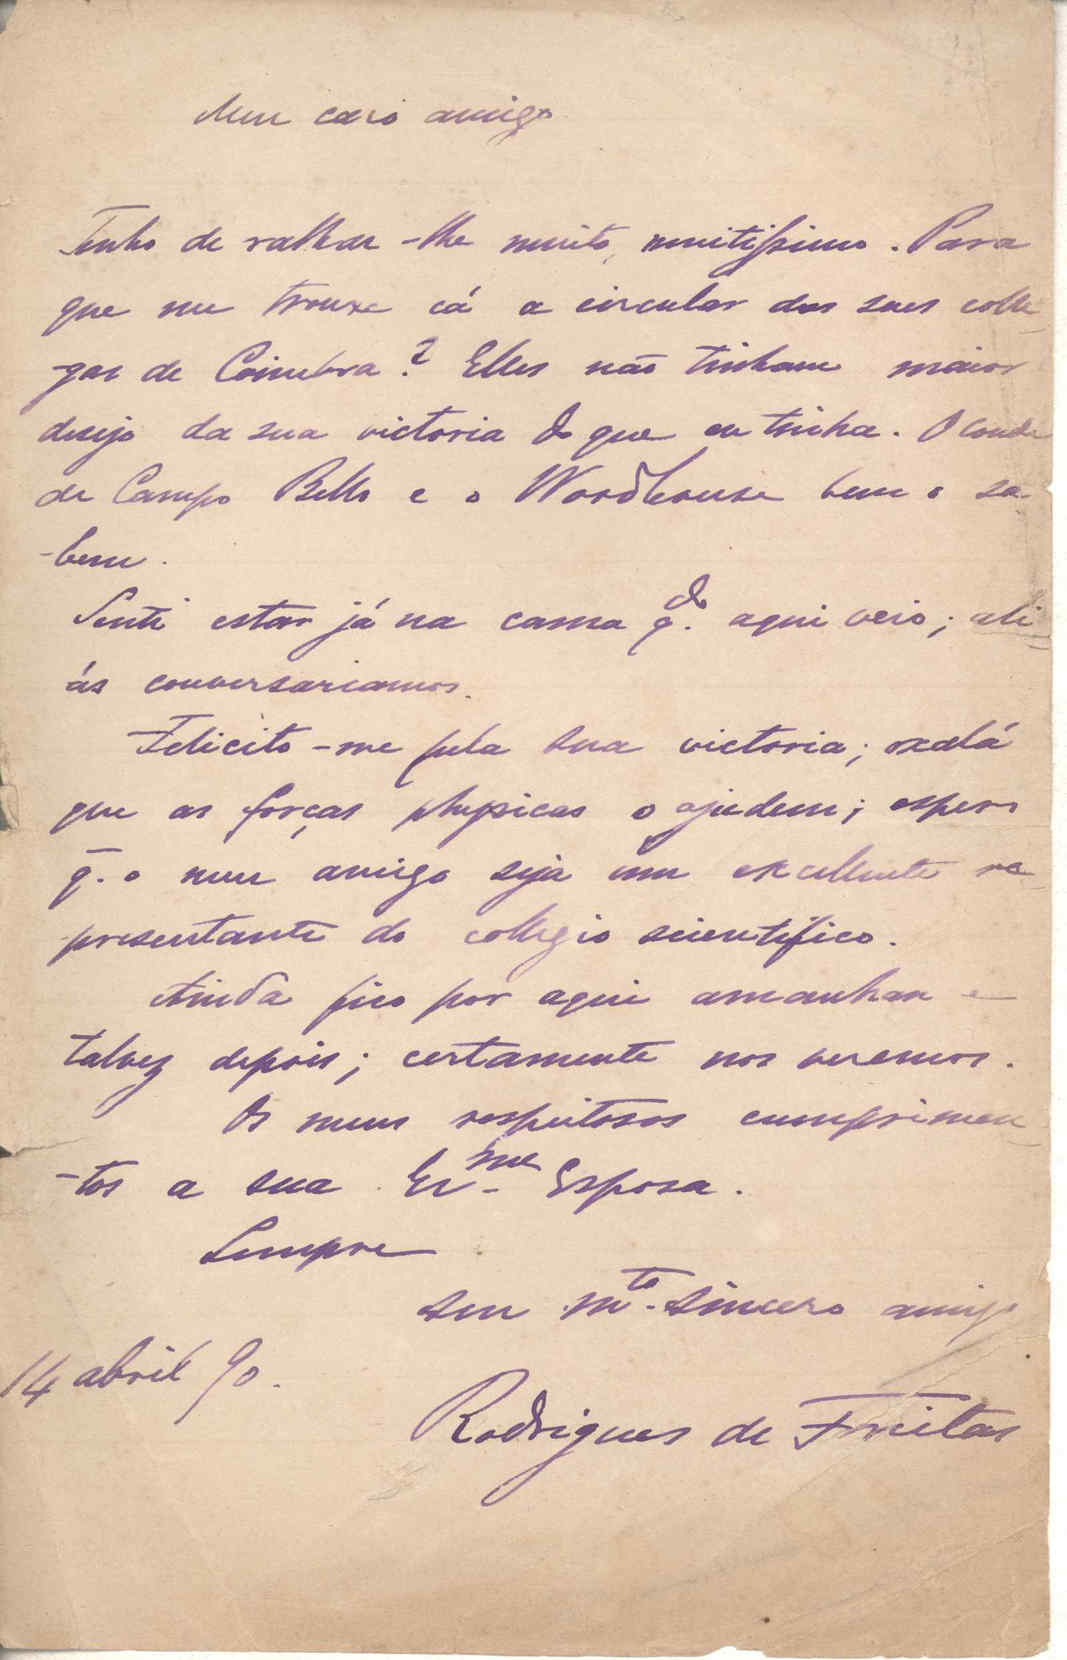 Meu caro amigo
Tenho de ralhar-lhe muito, muitissimo. Para
que me trouxe cá a circular dos seus colle-
-gas de Coimbra? Elles não tinham maior
desejo da sua victoria do que eu tinha. O Conde
de Campo Bello e o Woodhouse bem o sa-
-bem.
Senti estar já na cama q.do aqui veio; ali-
ás conversariamos.
Felicito-me pela sua victoria; oxalá
que as forças physicas o ajudem; espero
q̄. o meu amigo seja um excellente re-
-presentante do collegio scientifico.
Ainda fico por aqui amanhan e
talvez depois; certamente nos veremos.
Os meus respeitosos cumprimen-
-tos a sua Ex.ma Esposa.
Sempre
seu m.to sincero amigo
14 abril 90.
Rodrigues de Freitas